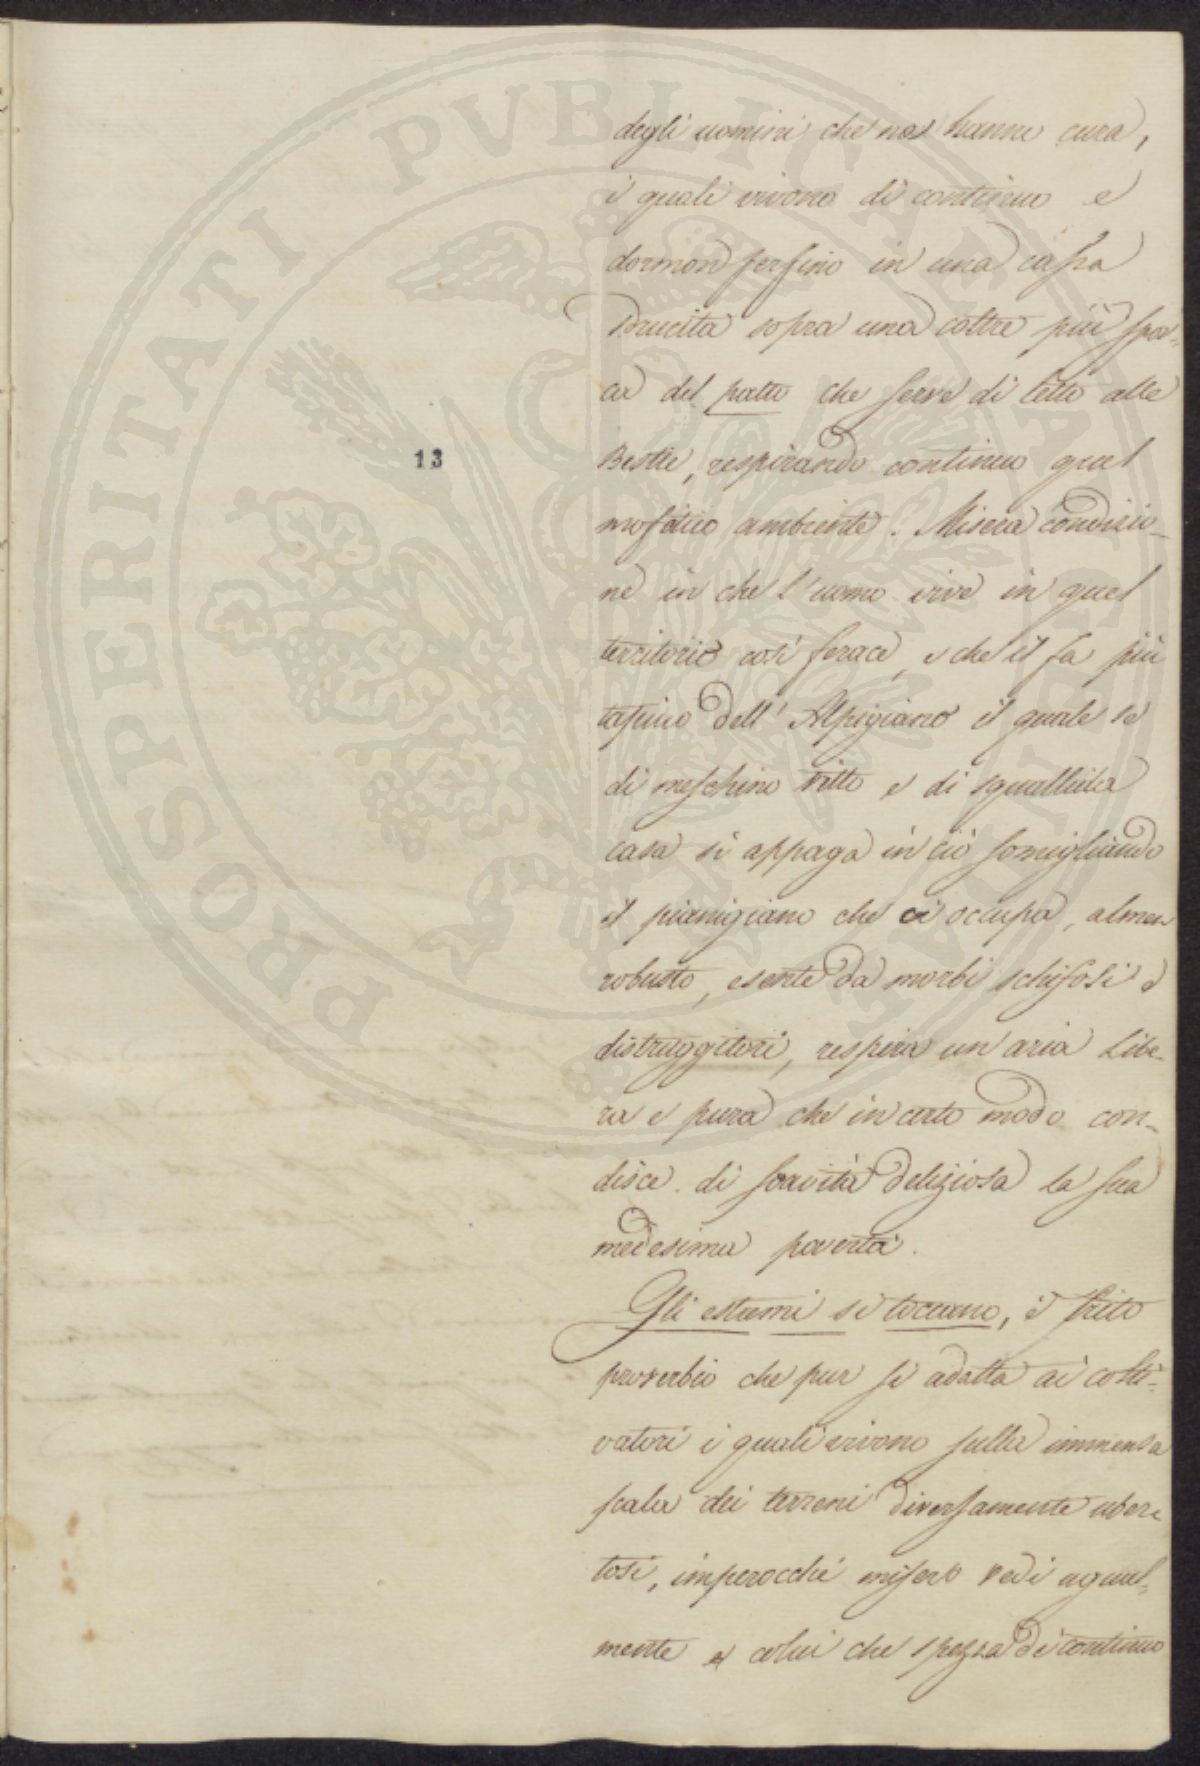 PROSPERITATI PVBLICAE AVGENDAE
13
degli uomini che ne hanno cura,
i quali vivono di continuo e
dormon perfino in una cassa
sdrucita sopra una coltre più spor-
ca del patto che serve di letto alle
Bestie, respirando continuo quel
mofetico ambiente. Misera condizio-
ne in che l'uomo vive in quel
territorio così ferace, e che il fa più
tapino dell'Alpigiano il quale se
di meschino vitto e di squallida
casa si appaga in ciò somigliando
il pianigiano che ci occupa, almen
robusto, esente da morbi schifosi e
distruggitori, respira un'aria libe-
ra e pura che in certo modo con-
disce di soavità deliziosa la sua
medesima povertà.
Gli estremi si toccano, è trito
proverbio che pur si adatta ai colti-
vatori i quali vivono sulla immensa
scala dei terreni diversamente uber-
tosi, imperocchè misero vedi egual-
mente e colui che spezza di continuo